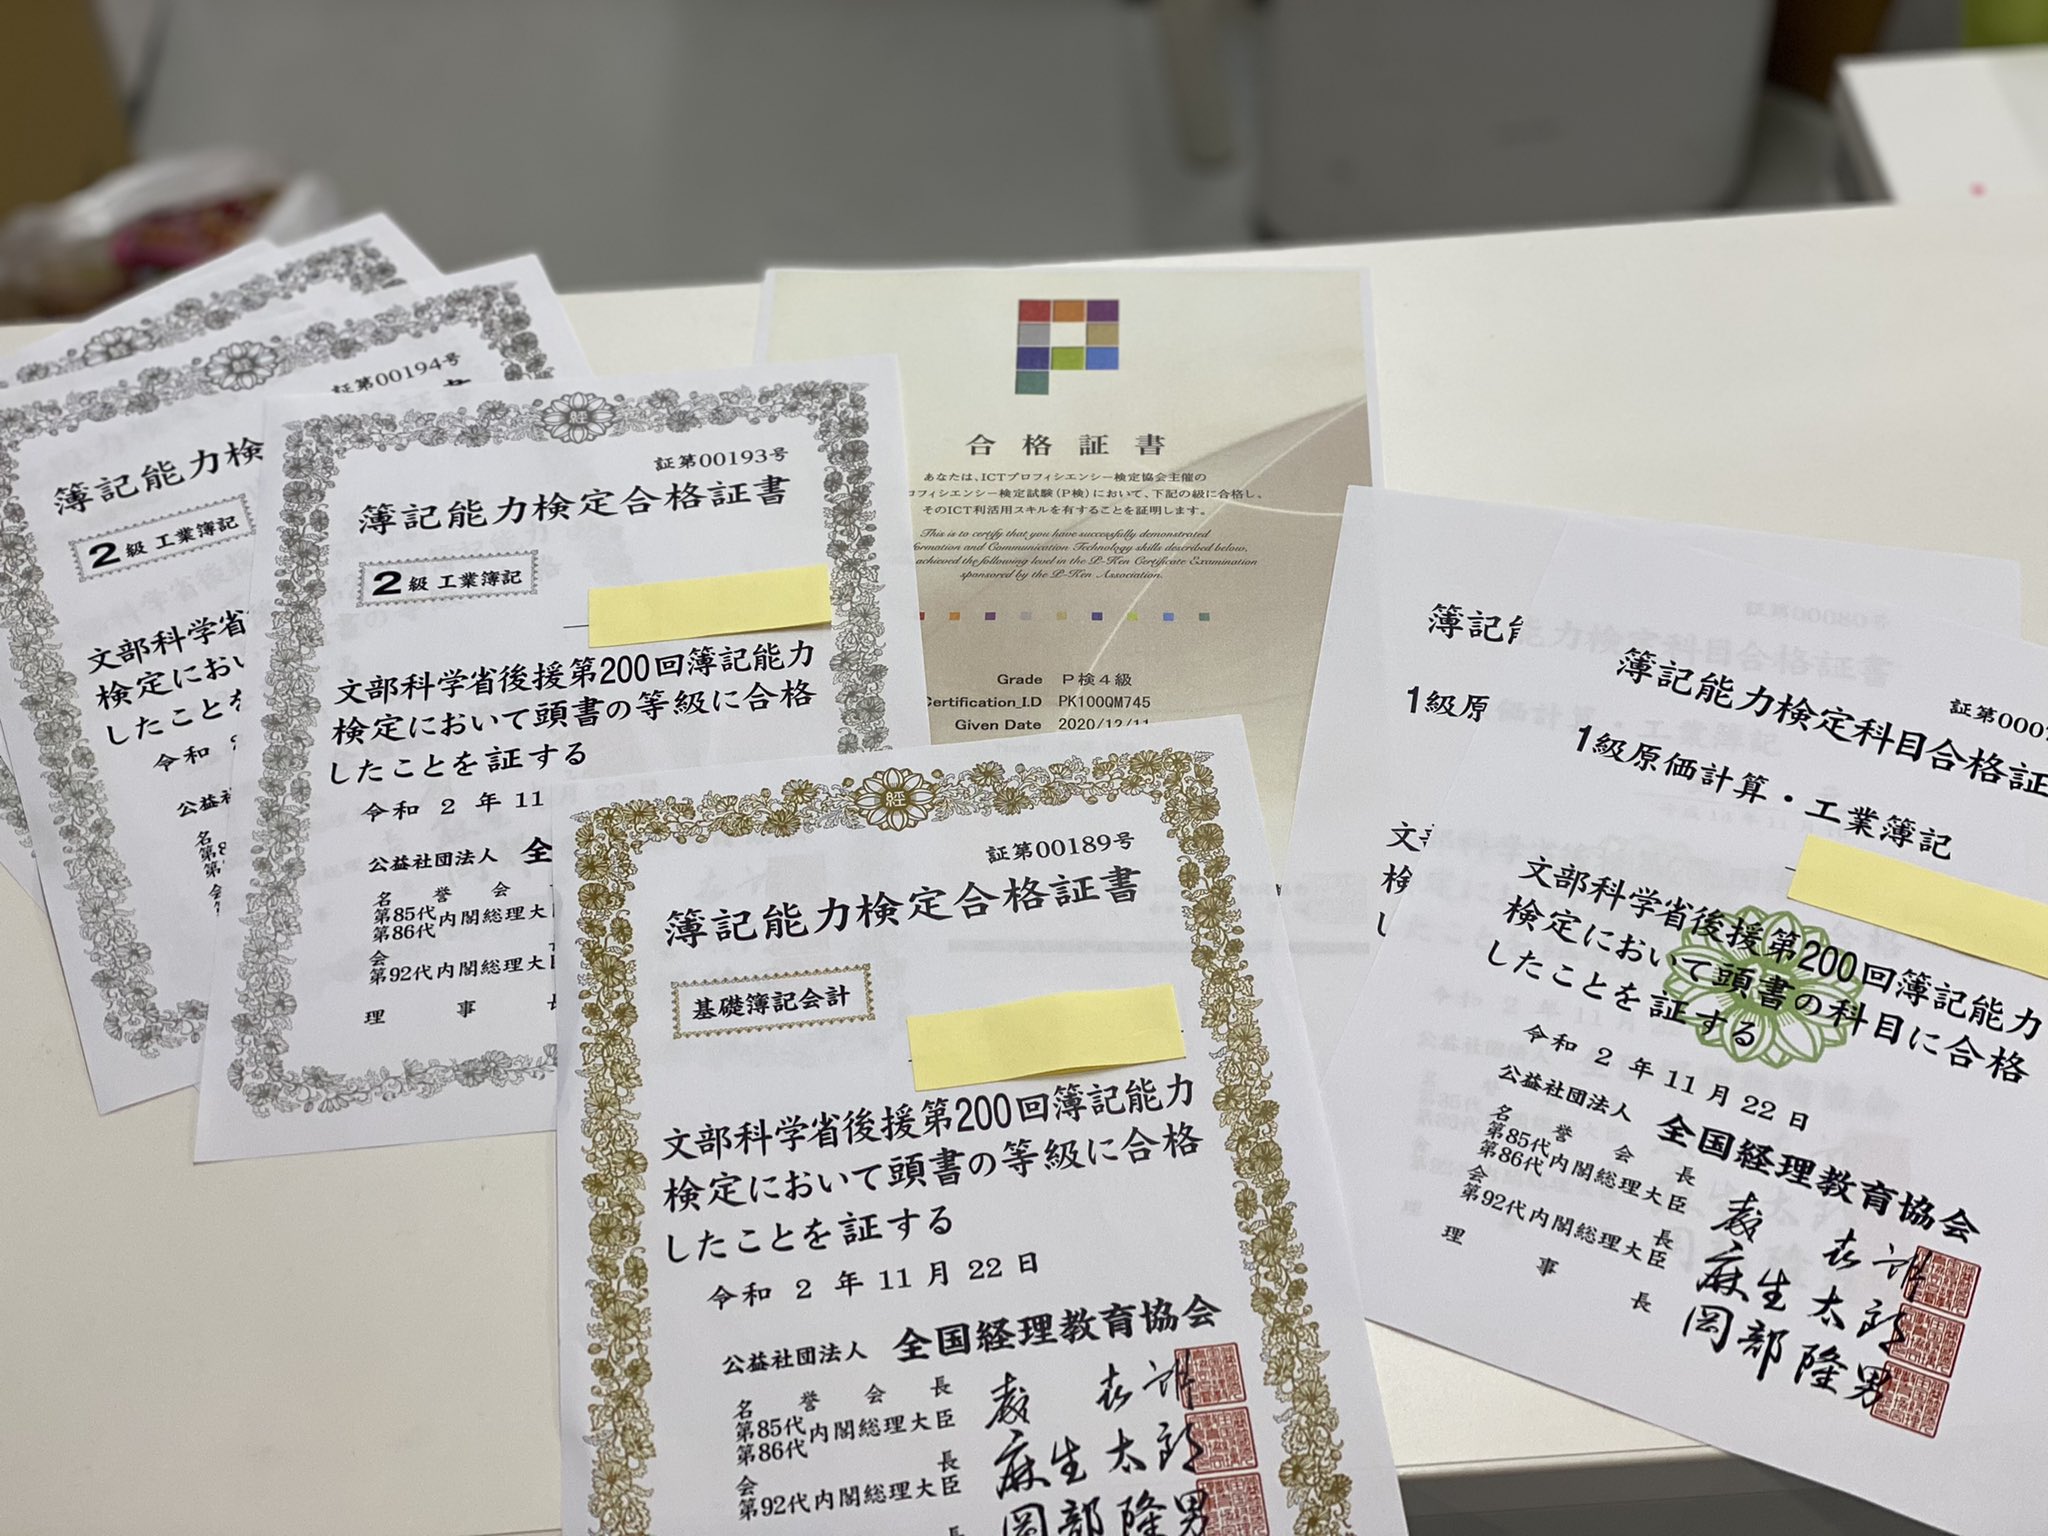 証第00194号
簿記能力検
2級 工業簿記
文部科学省
検定におい
したことを
令和
公益社
証第00193号
簿記能力検定合格証書
2級 工業簿記
文部科学省後援第200回簿記能力
検定において頭書の等級に合格
したことを証する
令和 2 年 11
公益社団法人 全
名誉会
第85代
第86代内閣総理大
会
第92代内閣総理大臣
理事長
合格証書
あなたは、ICTプロフィシエンシー検定協会主催の
ロフィシエンシー検定試験(P検)において、下記の級に合格し、
そのICT利活用スキルを有することを証明します。
This is to certify that you have successfully demonstrated
formation and Communication Technology skills described below,
achieved the following level in the P-Ken Certificate Examination
sponsored by the P-Ken Association.
Grade P検4級
Certification_I.D PK100QM745
Given Date 2020/12/11
経
証第00189号
簿記能力検定合格証書
基礎簿記会計
文部科学省後援第200回簿記能力
検定において頭書の等級に合格
したことを証する
令和 2 年 11 月 22 日
公益社団法人 全国経理教育協会
名誉会長
第85代
第86代内閣総理大臣
会長
第92代内閣総理大臣 麻生太郎
長 岡部隆男
簿記能
1級原
文
検
し
証第0007
簿記能力検定科目合格証
1級原価計算・工業簿記
文部科学省後援第200回簿記能力
検定において頭書の科目に合格
したことを証する
令和 2 年 11 月 22 日
公益社団法人 全国経理教育協会
名誉会長
第85代
第86代内閣総理大臣
会長
第92代内閣総理大臣 麻生太郎
理事長 岡部隆男